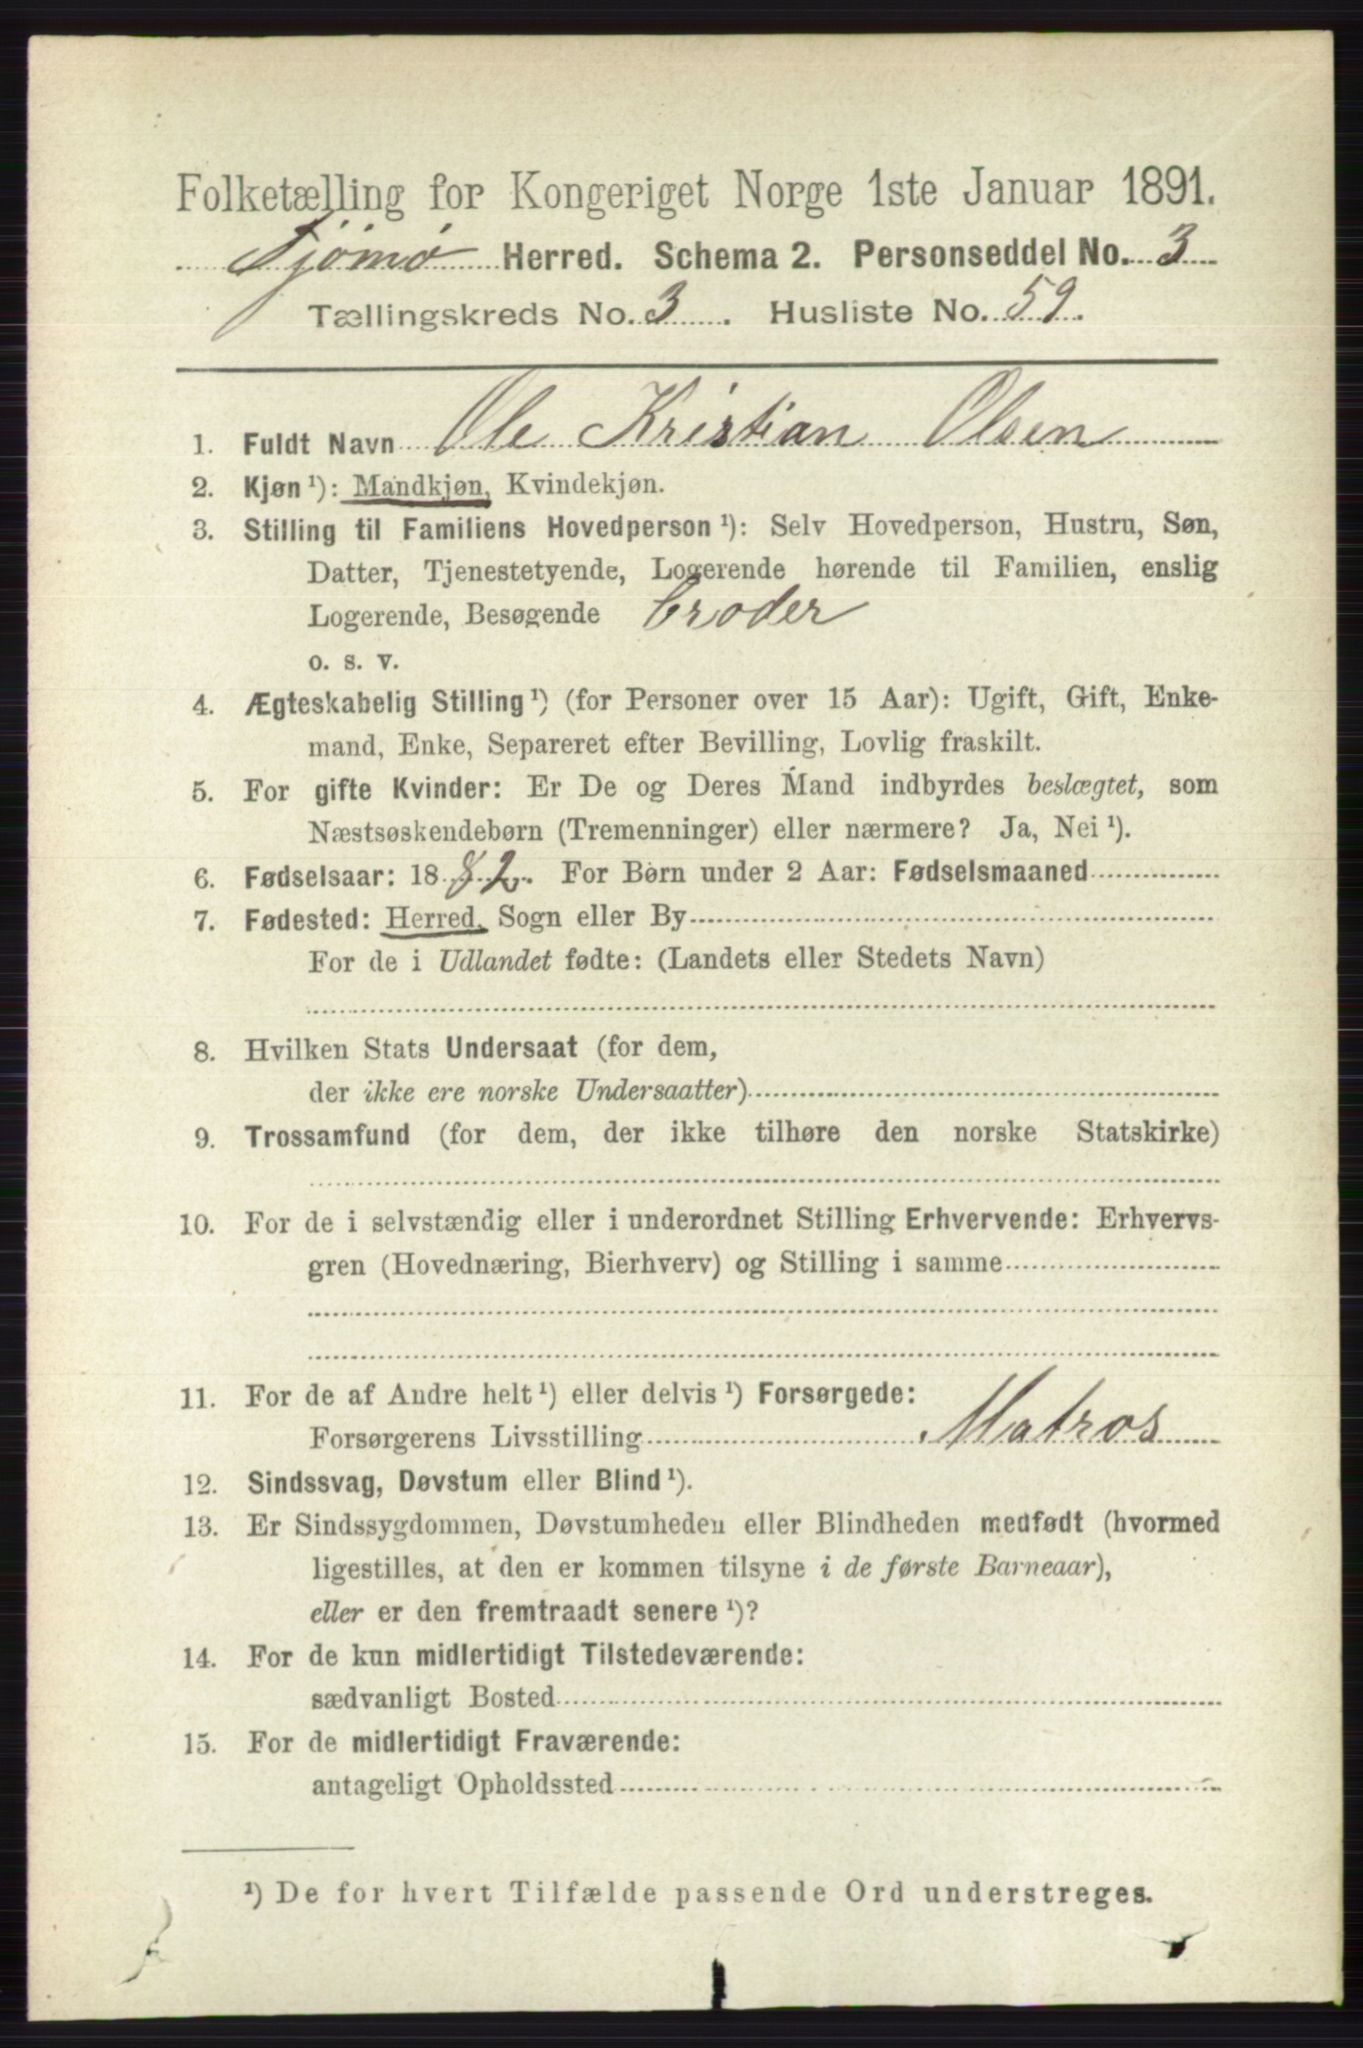 Folketælling for Kongeriget Norge 1ste Januar 1891.
Tjömö Herred. Schema 2. Personseddel No. 3
Tællingskreds No. 3. Husliste No. 59.
1. Fuldt Navn Ole Kristian Olsen
2. Kjøn ¹): Mandkjøn, Kvindekjøn.
3. Stilling til Familiens Hovedperson ¹): Selv Hovedperson, Hustru, Søn,
Datter, Tjenestetyende, Logerende hørende til Familien, enslig
Logerende, Besøgende broder
o. s. v.
4. Ægteskabelig Stilling ¹) (for Personer over 15 Aar): Ugift, Gift, Enke-
mand, Enke, Separeret efter Bevilling, Lovlig fraskilt.
5. For gifte Kvinder: Er De og Deres Mand indbyrdes beslægtet, som
Næstsøskendebørn (Tremenninger) eller nærmere? Ja, Nei ¹).
6. Fødselsaar: 1882. For Børn under 2 Aar: Fødselsmaaned
7. Fødested: Herred, Sogn eller By
For de i Udlandet fødte: (Landets eller Stedets Navn)
8. Hvilken Stats Undersaat (for dem,
der ikke ere norske Undersaatter)
9. Trossamfund (for dem, der ikke tilhøre den norske Statskirke)
10. For de i selvstændig eller i underordnet Stilling Erhvervende: Erhvervs-
gren (Hovednæring, Bierhverv) og Stilling i samme
11. For de af Andre helt ¹) eller delvis ¹) Forsørgede:
Forsørgerens Livsstilling Matros
12. Sindssvag, Døvstum eller Blind ¹).
13. Er Sindssygdommen, Døvstumheden eller Blindheden medfødt (hvormed
ligestilles, at den er kommen tilsyne i de første Barneaar),
eller er den fremtraadt senere ¹)?
14. For de kun midlertidigt Tilstedeværende:
sædvanligt Bosted
15. For de midlertidigt Fraværende:
antageligt Opholdssted
¹) De for hvert Tilfælde passende Ord understreges.